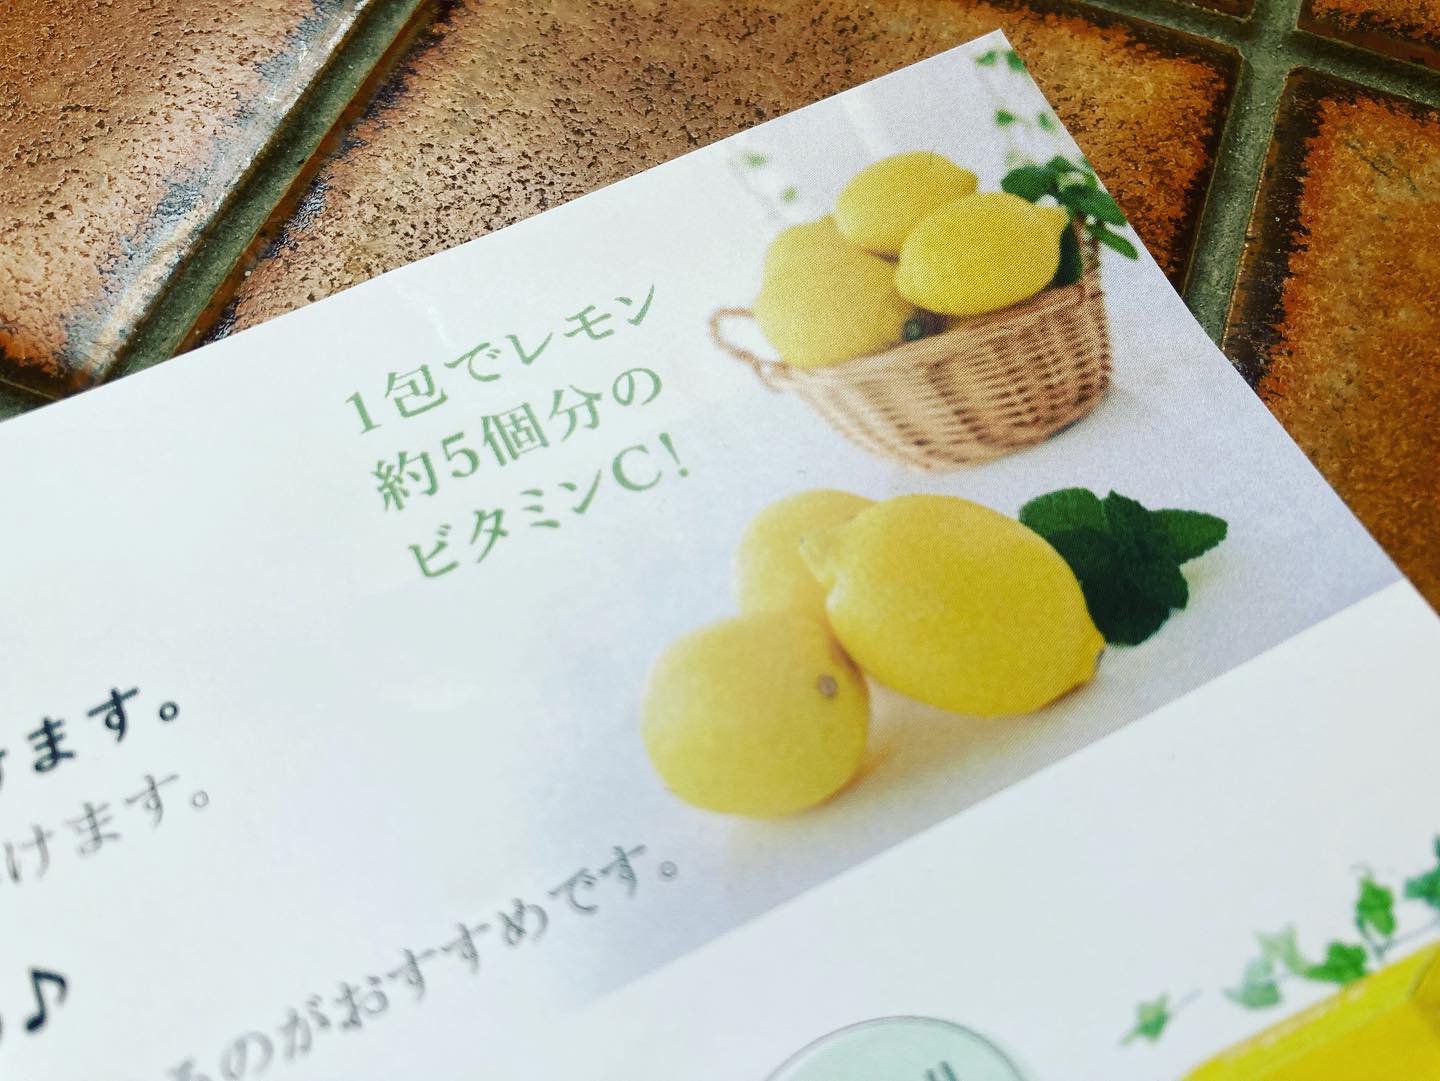 1包でレモン
約5個分の
ビタミンC!
けます。
けます。
るのがおすすめです。
♪